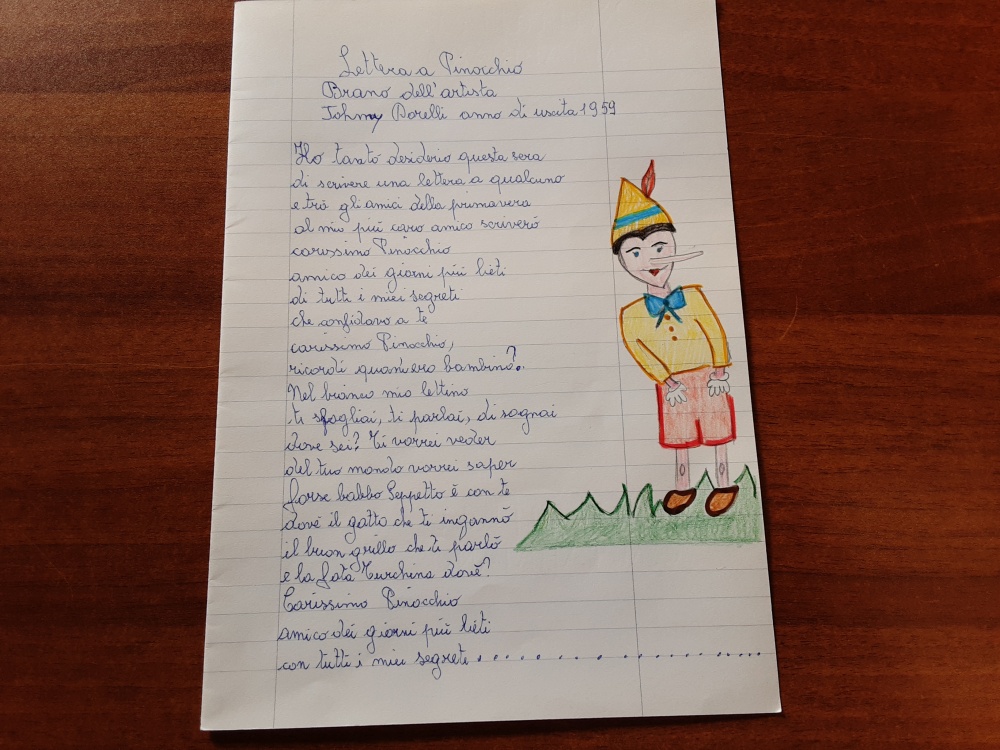 Lettera a Pinocchio
Brano dell'artista
Johnny Dorelli anno di uscita 1959
Ho tanto desiderio questa sera
di scrivere una lettera a qualcuno
e trà gli amici della primavera
al mio più caro amico scriverò
carissimo Pinocchio
amico dei giorni più lieti
di tutti i miei segreti
che confidavo a te
carissimo Pinocchio,
ricordi quand'ero bambino?
Nel bianco mio lettino
ti sfogliai, ti parlai, di sognai
dove sei? Ti vorrei veder
del tuo mondo vorrei saper
forse babbo Geppetto è con te
dov'è il gatto che ti ingannò
il buon grillo che ti parlò
e la fata Turchina dov'è?
Carissimo Pinocchio
amico dei giorni più lieti
con tutti i miei segreti..................